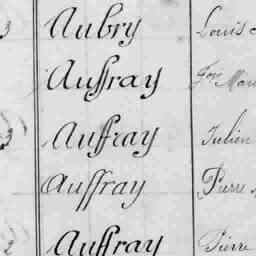 3 Aubry Louis
Auffray fçois
Auffray Julien
Auffray Pierre
2 Auffray Pierre